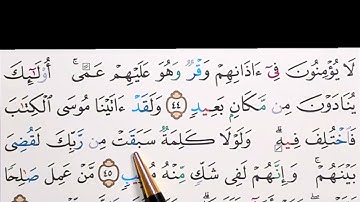 لَا يُؤْمِنُونَ فِىٓ ءَاذَانِهِمْ وَقْرٌ وَهُوَ عَلَيْهِمْ عَمًى ۚ أُو۟لَـٰٓئِكَ
يُنَادَوْنَ مِن مَّكَانٍۭ بَعِيدٍ ﴿٤٤﴾ وَلَقَدْ ءَاتَيْنَا مُوسَى ٱلْكِتَـٰبَ
فَٱخْتُلِفَ فِيهِ ۗ وَلَوْلَا كَلِمَةٌ سَبَقَتْ مِن رَّبِّكَ لَقُضِىَ
بَيْنَهُمْ ۚ وَإِنَّهُمْ لَفِى شَكٍّ مِّنْهُ مُرِيبٍ ﴿٤٥﴾ مَّنْ عَمِلَ صَـٰلِحًا